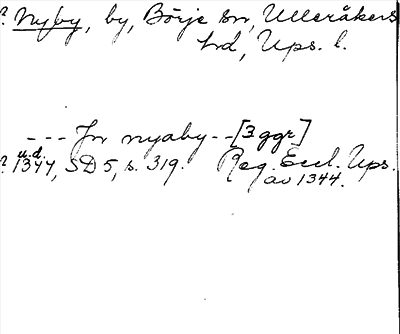 ? Nyby, by, Börje sn, Ulleråkers
hd, Ups. l.
--- Jn nyaby --[3 ggr]
u.d.
? 1344, SD 5, s. 319. Reg. Eccl. Ups.
av 1344.